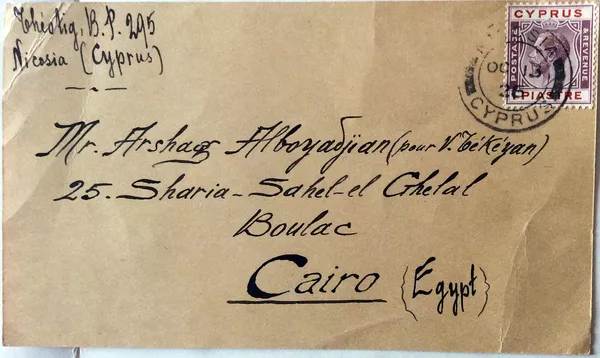 Théotig, B.P. 295
Nicosia (Cyprus)
CYPRUS
POSTAGE
& REVENUE
PIASTRE
OC 13
CYPRUS
Mr. Arshag Alboyadjian (pour V. Tékéyan)
25. Sharia-Sahel-el Ghelal
Boulac
Cairo (Egypt)